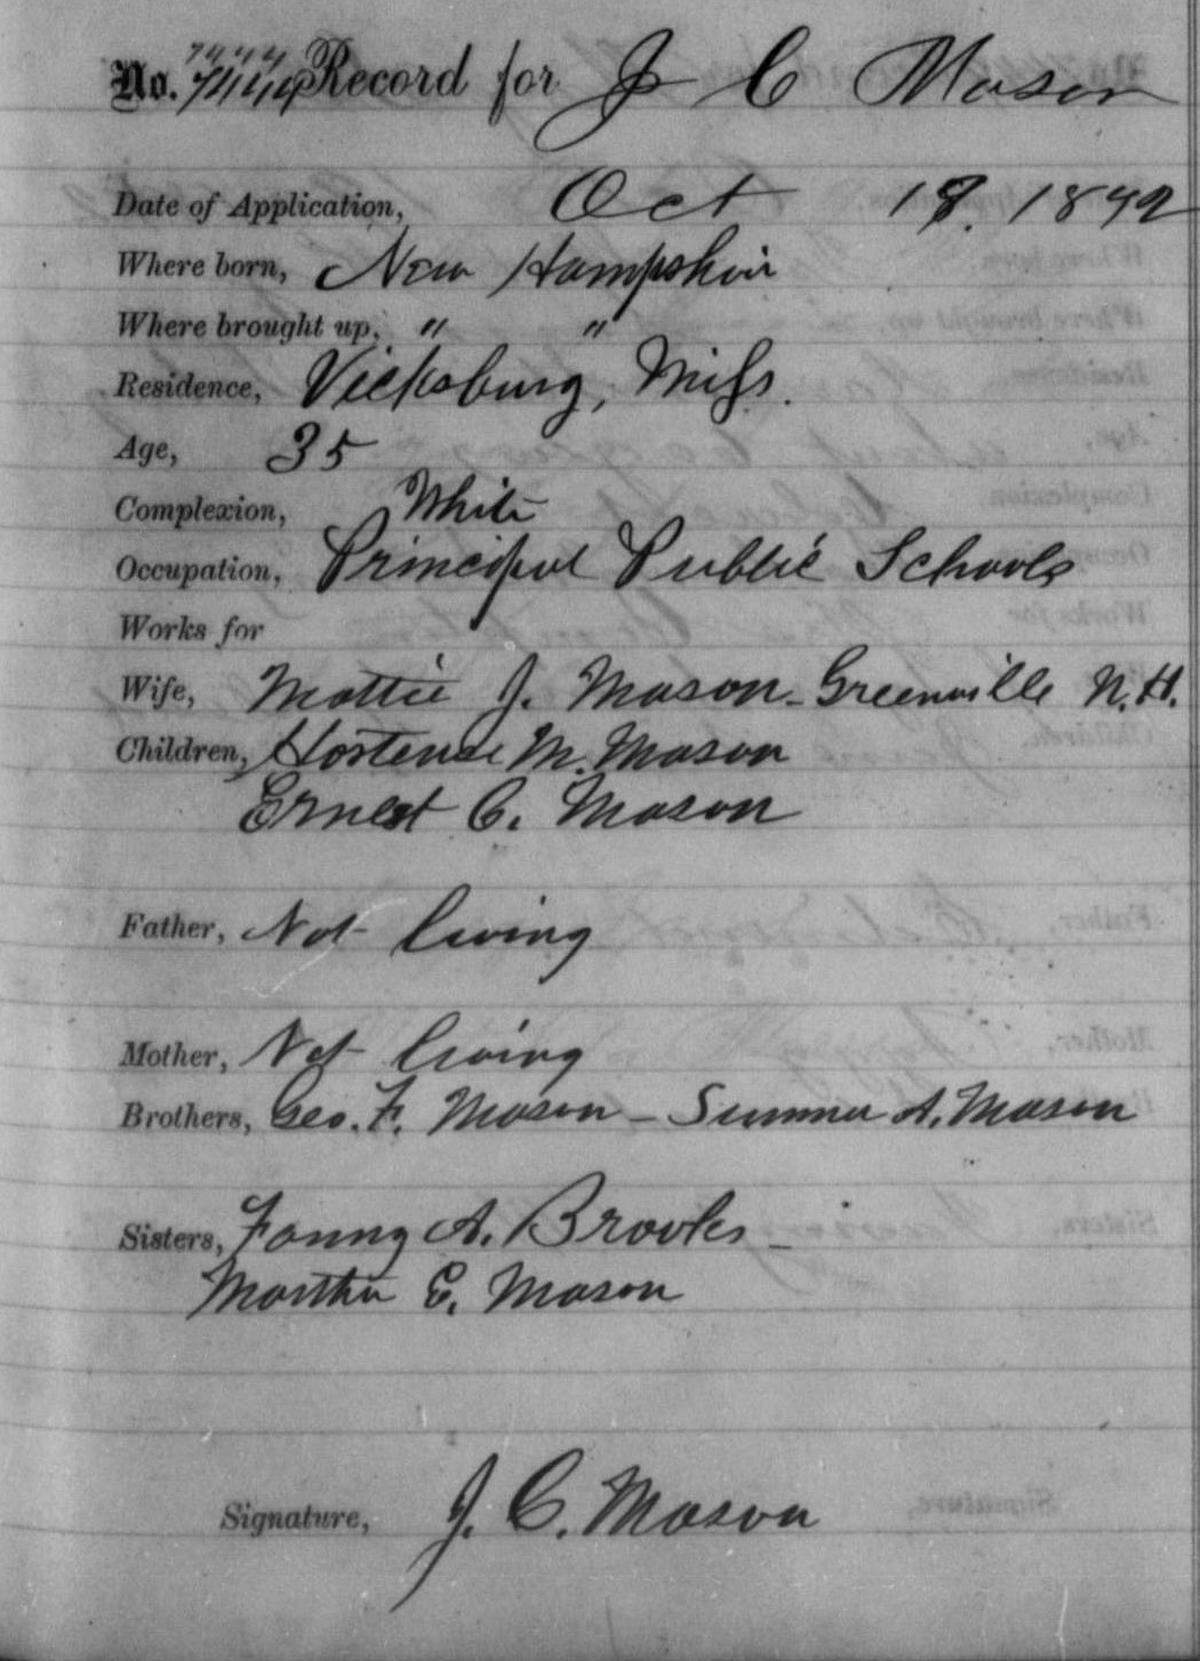 No. 7444 Record for J C Mason
Date of Application, Oct 18. 1872
Where born, New Hampshire
Where brought up, " "
Residence, Vicksburg, Miss.
Age, 35
Complexion, White
Occupation, Principal Public Schools
Works for
Wife, Mattie J. Mason - Greenville N.H.
Children, Hortense M. Mason
Ernest C. Mason
Father, Not living
Mother, Not living
Brothers, Geo. F. Mason - Sumner A. Mason
Sisters, Fanny A. Brooks -
Martha E. Mason
Signature, J. C. Mason